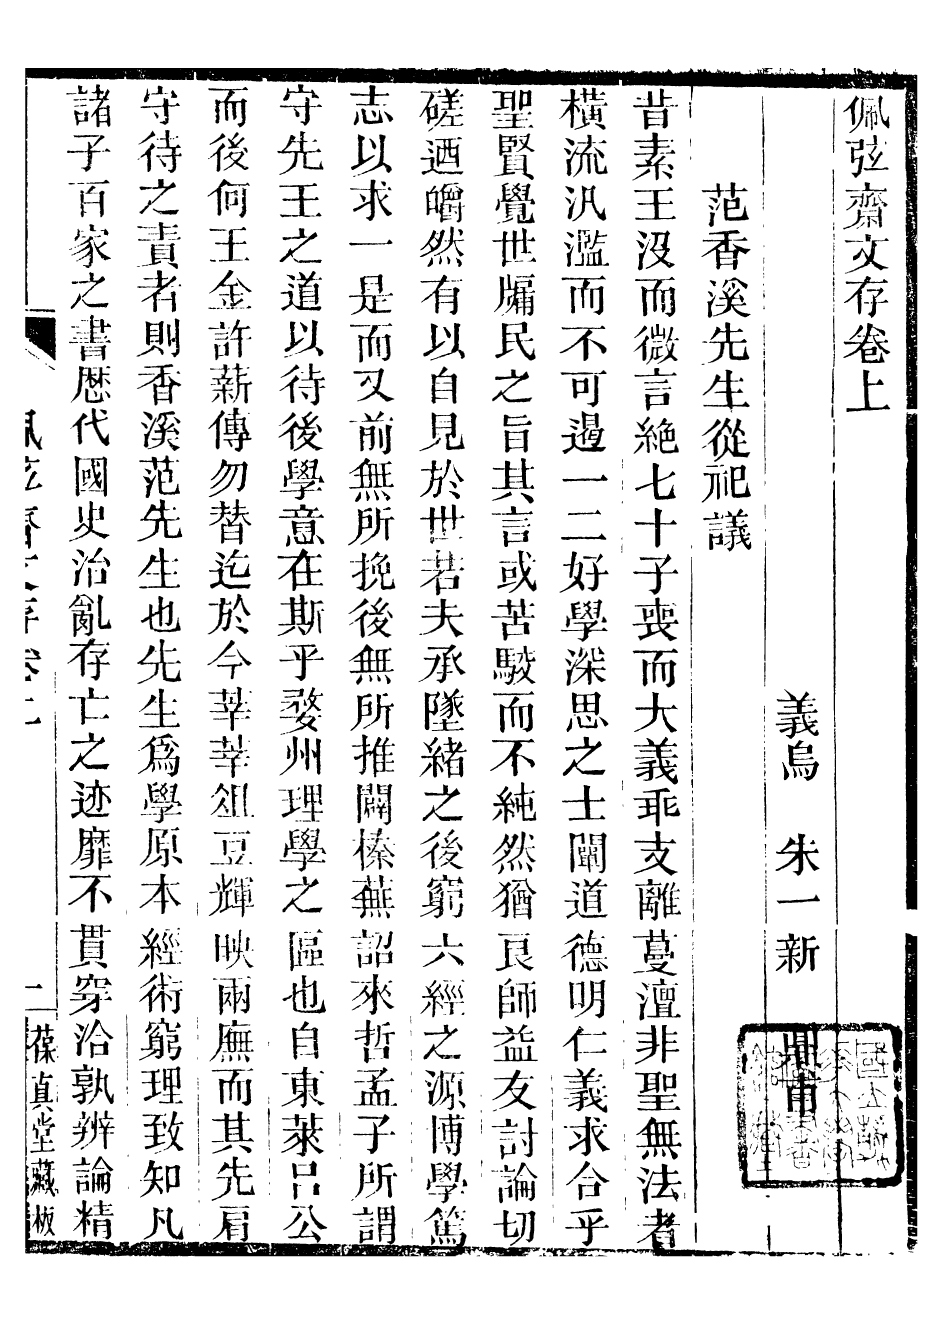 佩弦齋文存卷上
義烏 朱一新 鼎甫
范香溪先生從祀議
昔素王沒而微言絶七十子喪而大義乖支離蔓澶非聖無法者
橫流汎濫而不可遏一二好學深思之士闡道德明仁義求合乎
聖賢覺世牖民之旨其言或苦駮而不純然猶良師益友討論切
磋迺皭然有以自見於世若夫承墜緒之後窮六經之源博學篤
志以求一是而又前無所挽後無所推闢榛蕪詔來哲孟子所謂
守先王之道以待後學意在斯乎婺州理學之區也自東萊呂公
而後何王金許薪傳勿替迄於今莘莘俎豆輝映兩廡而其先肩
守待之責者則香溪范先生也先生爲學原本經術窮理致知凡
諸子百家之書歷代國史治亂存亡之迹靡不貫穿洽孰辨論精
佩弦齋文存卷上
一
葆真堂藏板